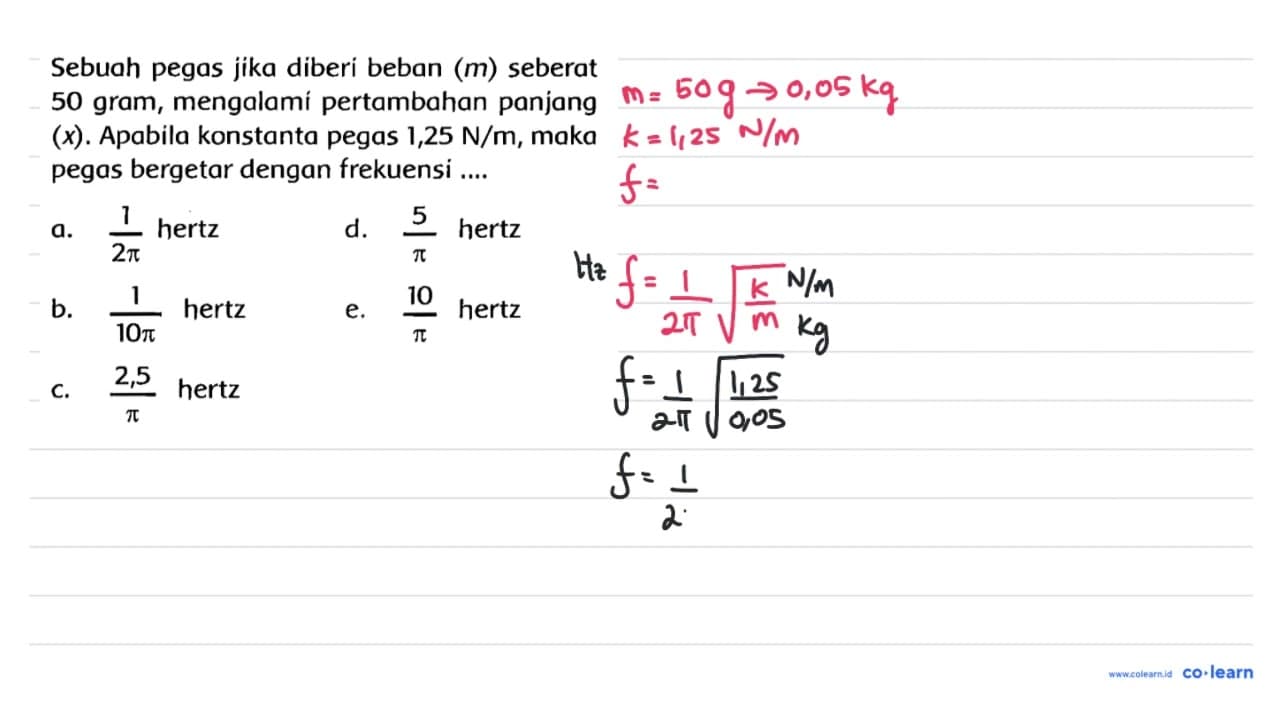 Sebuah pegas jika diberi beban (m) seberat
50 gram, mengalami pertambahan panjang
(x). Apabila konstanta pegas 1,25 N/m, maka
pegas bergetar dengan frekuensi ....
a. 1/2π hertz
b. 1/10π hertz
c. 2,5/π hertz
d. 5/π hertz
e. 10/π hertz
m = 50 g → 0,05 kg
k = 1,25 N/m
f =
Hz f = 1/2π √k/m N/m kg
f = 1/2π √1,25/0,05
f = 1/2
www.colearn.id co·learn